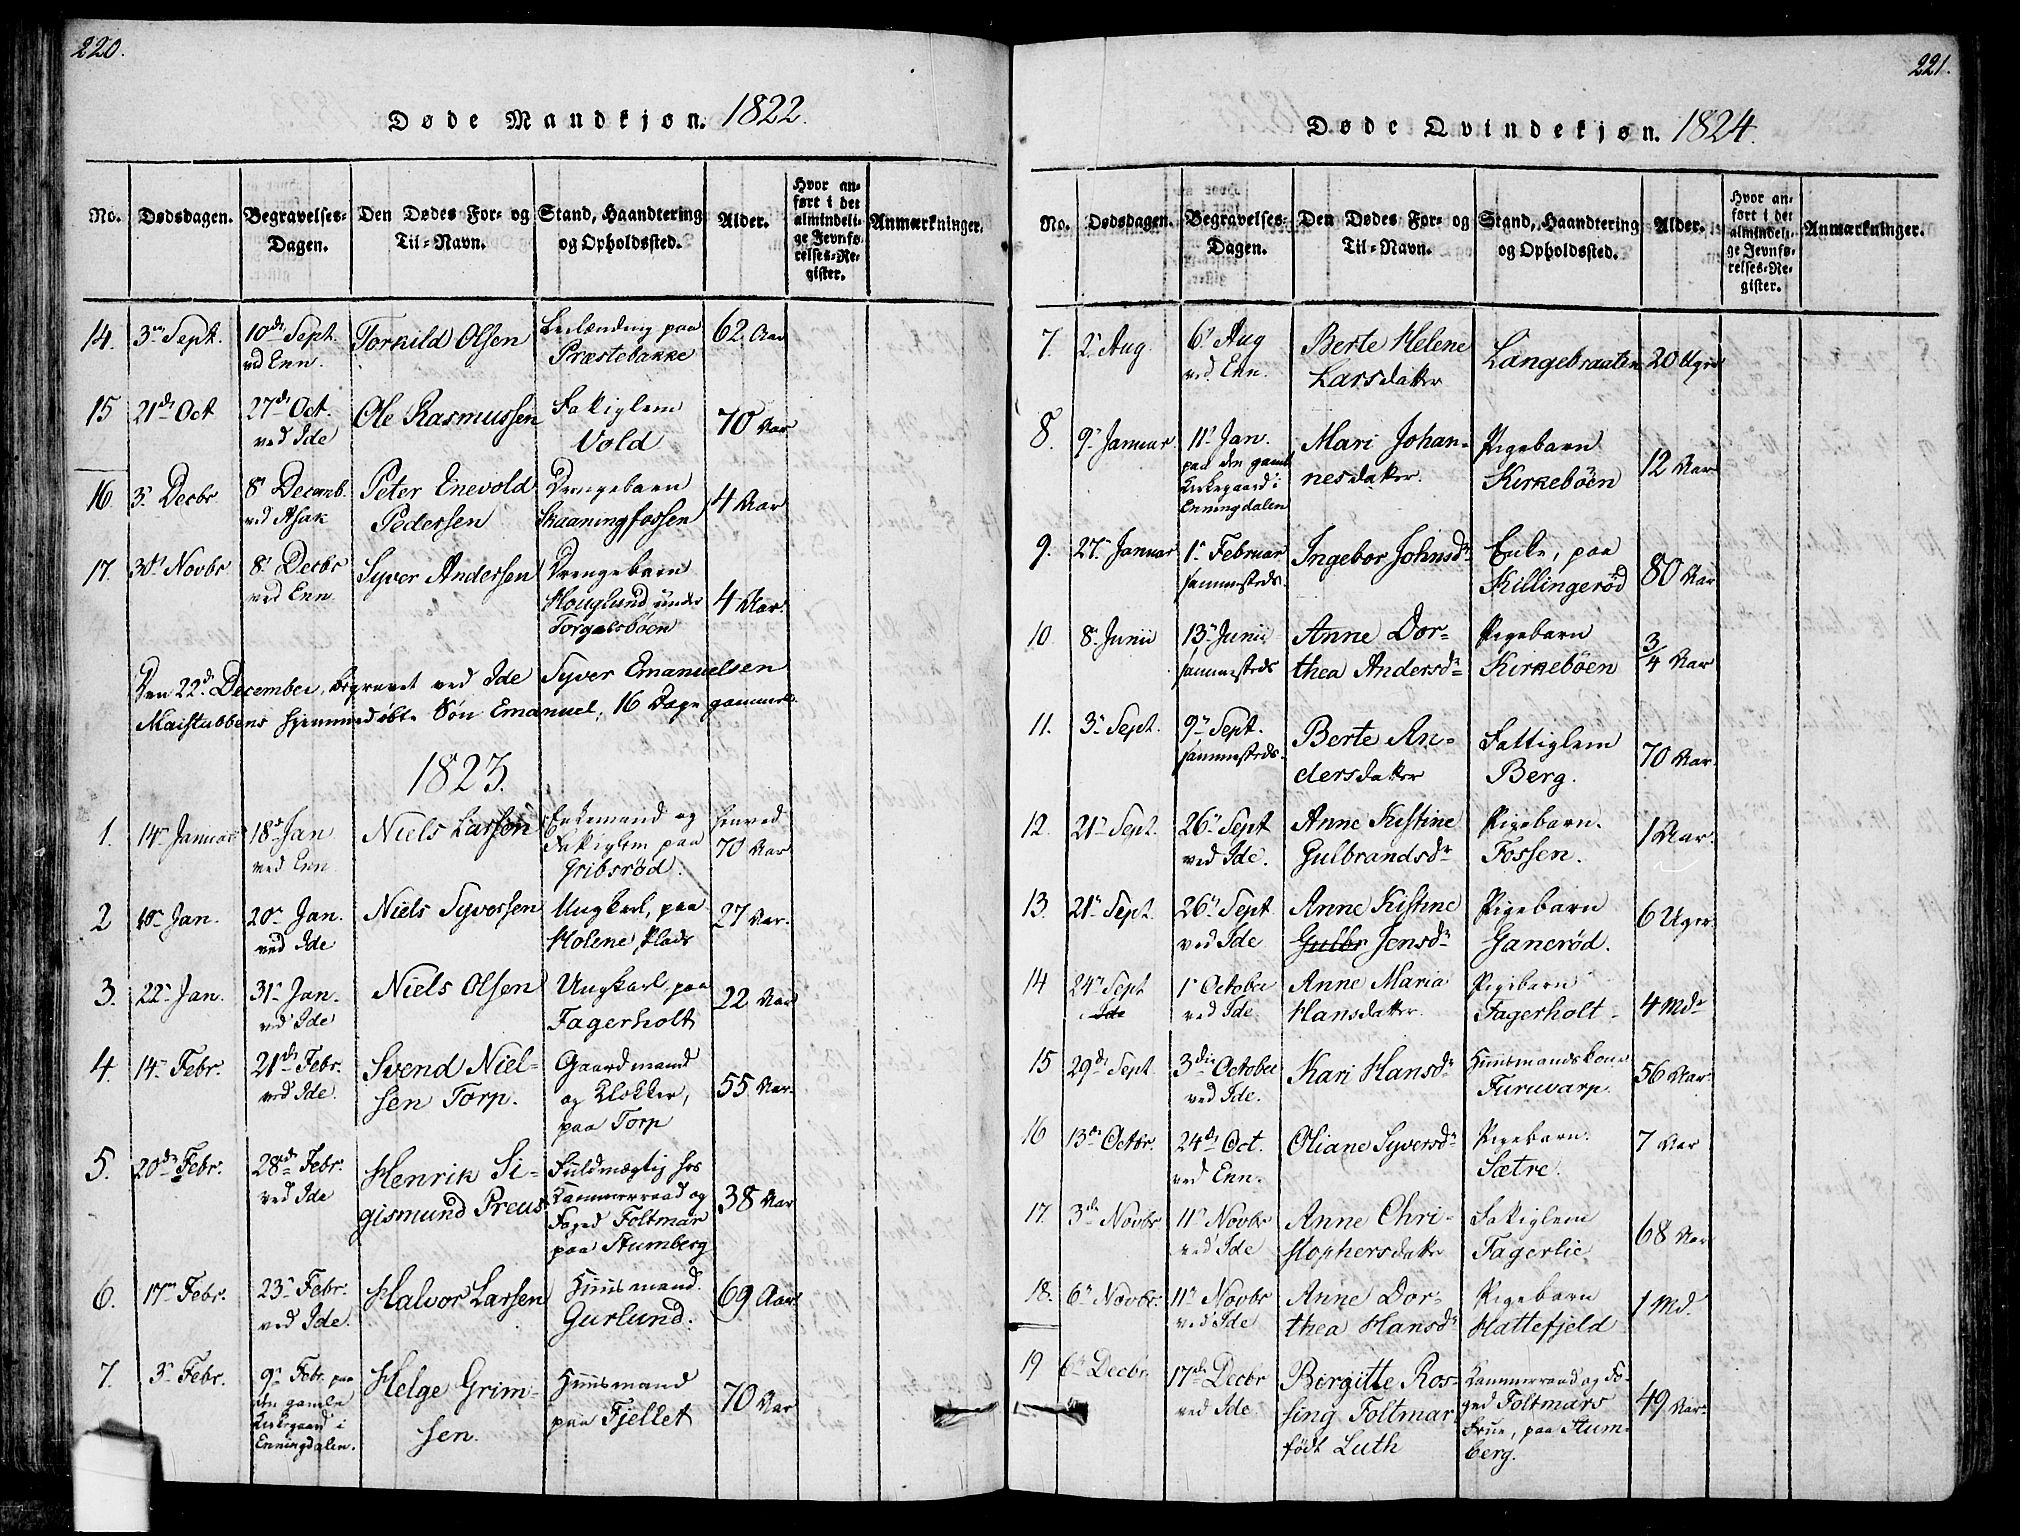 220.
Døde Mandkjøn. 1822.
No.
Dødsdagen.
Begravelses-
Dagen.
Den Dødes For- og
Til-Navn.
Stand, Haandtering
og Opholdssted.
Alder.
Hvor an-
ført i det
almindeli-
ge Jevnfø-
relses-Re-
gister.
Anmærkninger.
14. 3 Sept. 10de Sept. ved Enn. Torkild Olsen paa Præstebakke 62 Aar
15 21de Oct 27de Oct. ved Ide Ole Rasmussen Fattiglem Vold 70 Aar
16. 3. Decbr 8 Decemb. ved Asak Peter Enevold Pedersen Drengebarn Skaaningfossen 4 Aar
17. 30 Novbr 8 Decbr ved Enn. Syver Andersen Drengebarn Houglund under Torgalsbøen 4 Aar.
Den 22de December, begravet ved Ide Syver Emanuelsen
Maistubbens hjemmedøbte Søn Emanuel, 16 Dage gammel.
1823.
1. 14 Januar 18 Jan ved Enn Niels Larsen Enkemand og Fattiglem paa Gribsrød. henved 70 Aar
2 10 Jan. 20 Jan. ved Ide Niels Syversen Ungkarl, paa Holene, Plads 27 Aar.
3. 22 Jan. 31 Jan. ved Ide Niels Olsen Ungkarl, paa Fagerholt 22 Aar
4. 14 Febr. 21de Febr. ved Ide. Svend Niel-
sen Torp. Gaardmand og Klokker, paa Torp 55 Aar.
5. 20de Febr. 28de Febr. ved Ide Henrik Si-
gismund Preus Fuldmægtig hos Kammerraad og Foged Foltmar paa Stumberg 38 Aar
6. 17 Febr. 23 Febr. ved Ide. Halvor Larsen Huusmand. Gurlund. 69 Aar
7. 3 Febr. 9 Febr. paa den gamle Kirkegaard i Enningdalen. Helge Grim-
sen. Huusmand paa Fjellet 70 Aar
221.
Døde Qvindekjøn. 1824.
No.
Dødsdagen.
Begravelses-
Dagen.
Den Dødes For- og
Til-Navn.
Stand, Haandtering
og Opholdssted.
Alder.
Hvor an-
ført i det
almindeli-
ge Jevnfø-
relses-Re-
gister.
Anmærkninger.
7. 2 Aug. 6 Aug ved Enn. Berte Helene Larsdatter Langebraaten 20 Uger
8. 9 Januar 11 Jan. paa den gamle Kirkegaard i Enningdalen Mari Johan-
nesdatter. Pigebarn Kirkebøen 12 Aar
9. 27 Januar 1 Februar sammesteds. Ingebor Johnsdr Enke, paa Killingerød 80 Aar
10. 8 Junii 13 Junii sammesteds Anne Dor-
thea Andersdr Pigebarn Kirkebøen 3/4 Aar
11. 3 Sept. 9 Sept. sammesteds. Berte An-
dersdatter Fattiglem Berg. 70 Aar.
12. 21 Sept. 26 Sept ved Ide. Anne Kistine Gulbrandsdr Pigebarn. Fossen. 1 Aar.
13. 21 Sept. 26 Sept. ved Ide Anne Kistine Gulbr Jensdr Pigebarn Ganerød. 6 Uger
14 24 Sept Ide 1 October ved Ide Anne Maria Hansdatter. Pigebarn Fagerholt 4 Mdr
15 29de Sept 3die October ved Ide. Kari Hansdr Huusmandskone Furuvarp. 56 Aar.
16 13 Octbr. 24de Oct. ved Enn. Oliane Syversdr Pigebarn. Sætre. 7 Aar
17. 3de Novbr 11 Novbr ved Ide Anne Chri-
stophersdatter Fattiglem Fagerlie 68 Aar
18. 6 Novbr. 11 Novbr ved Ide Anne Dor-
thea Hansdr Pigebarn Hattefjeld 1 Md.
19 6 Decbr. 17de Decbr ved Ide Birgitte Ros-
sing Foltmar født Luth Kammerraad og Fo-
ged Foltmars Frue, paa Stum-
berg. 49 Aar.